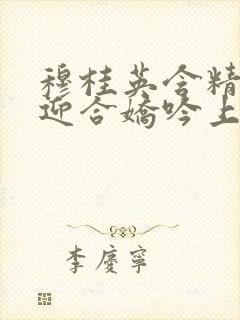 穆桂英含精
迎合嬌吟上
李慶寧